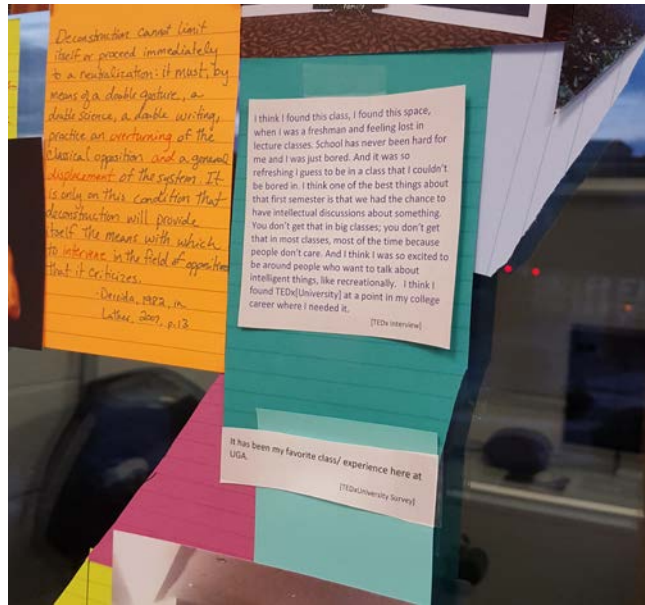 Deconstruction cannot limit
itself or proceed immediately
to a neutralization: it must, by
means of a double gesture, a
double science, a double writing,
practice an overturning of the
classical opposition and a general
displacement of the system. It
is only on this condition that
deconstruction will provide
itself the means with which
to intervene in the field of oppositions
that it criticizes.
-Derrida, 1982, in
Lather, 2007, p.13
I think I found this class, I found this space,
when I was a freshman and feeling lost in
lecture classes. School has never been hard for
me and I was just bored. And it was so
refreshing I guess to be in a class that I couldn't
be bored in. I think one of the best things about
that first semester is that we had the chance to
have intellectual discussions about something.
You don't get that in big classes; you don't get
that in most classes, most of the time because
people don't care. And I think I was so excited to
be around people who want to talk about
intelligent things, like recreationally. I think I
found TEDx[University] at a point in my college
career where I needed it.
[TEDx Interview]
It has been my favorite class/ experience here at
UGA.
[TEDxUniversity Survey]